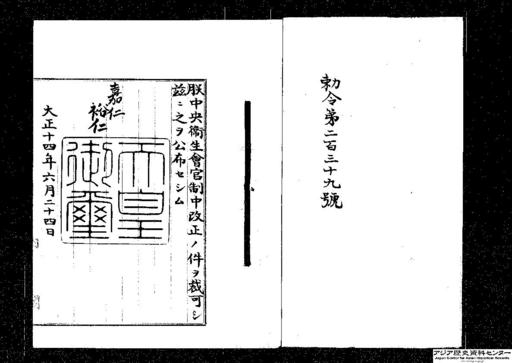 勅令第二百三十九號
朕中央衞生會官制中改正ノ件ヲ裁可シ
茲ニ之ヲ公布セシム
嘉仁
裕仁
天皇
御璽
大正十四年六月二十四日
アジア歴史資料センター
Japan Center for Asian Historical Records